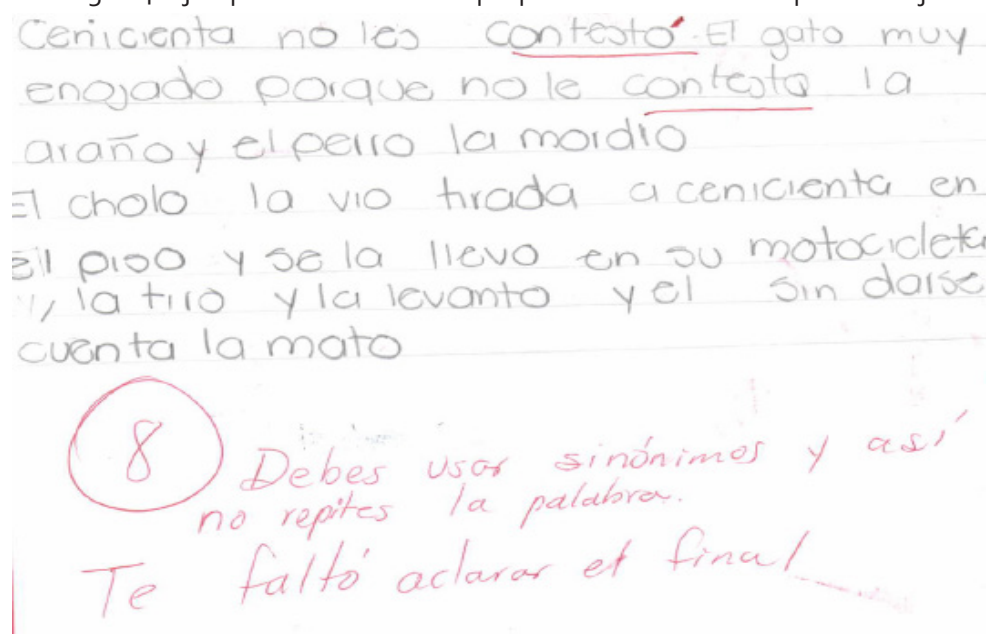 Cenicienta no les contestó. El gato muy
enojado porque no le contesto la
araño y el perro la mordio
El cholo la vio tirada a cenicienta en
el piso y se la llevo en su motocicleta
y la tiro y la levanto y el sin darse
cuenta la mato
8
Debes usar sinónimos y así
no repites la palabra.
Te faltó aclarar el final